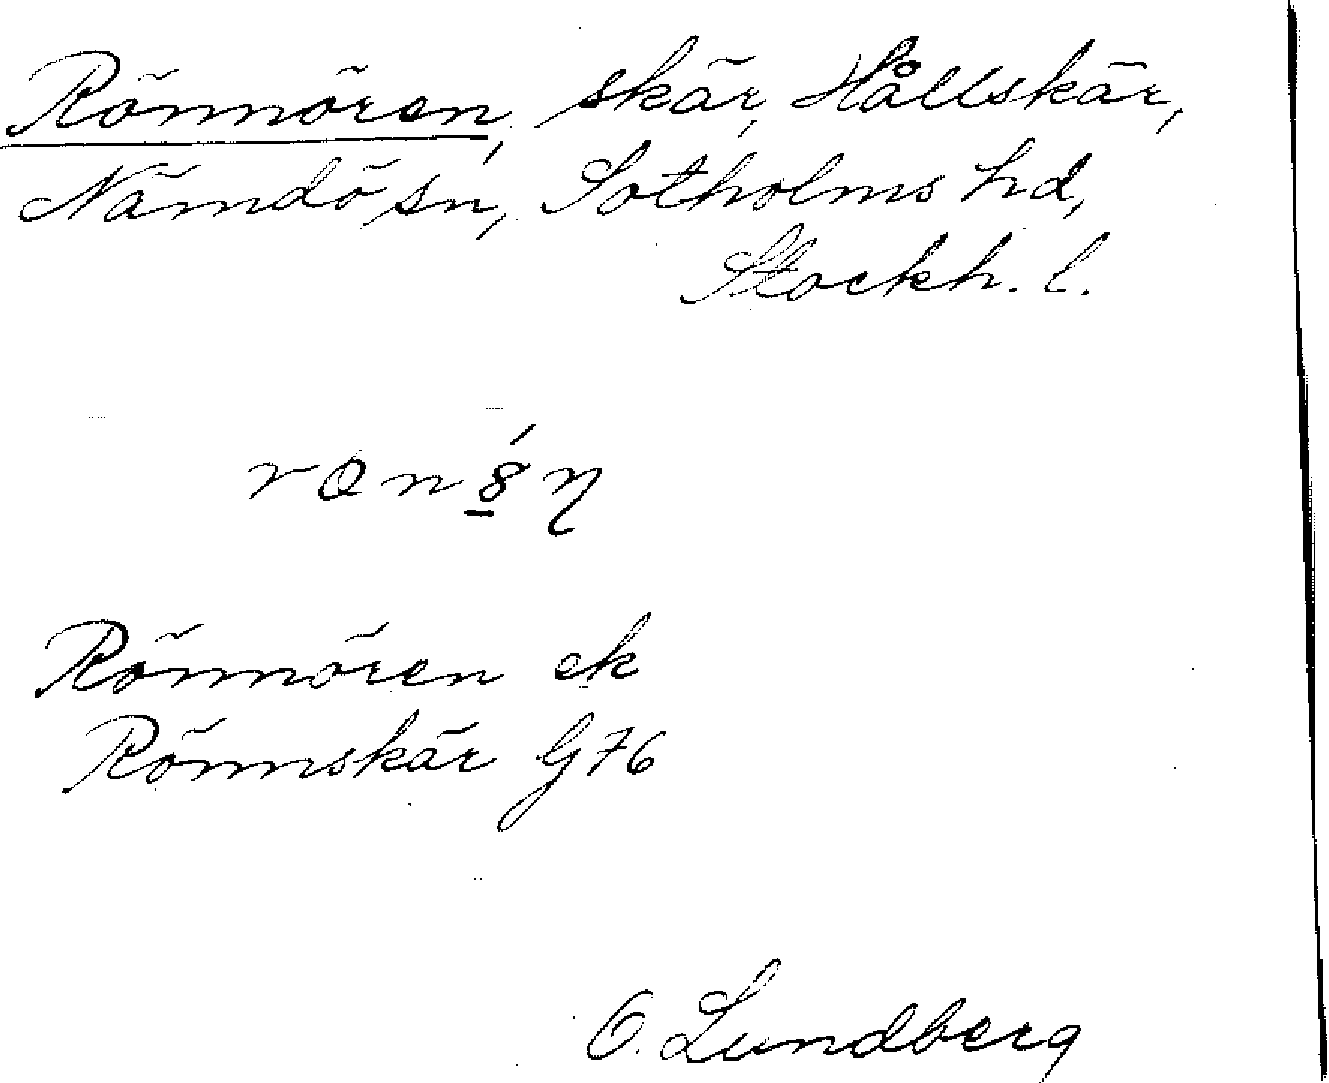 Rönnören, skär, Hållskär,
Nämdö sn, Sotholms hd,
Stockh. l.
Rönnören ek
Rönnskär G76
O. Lundberg